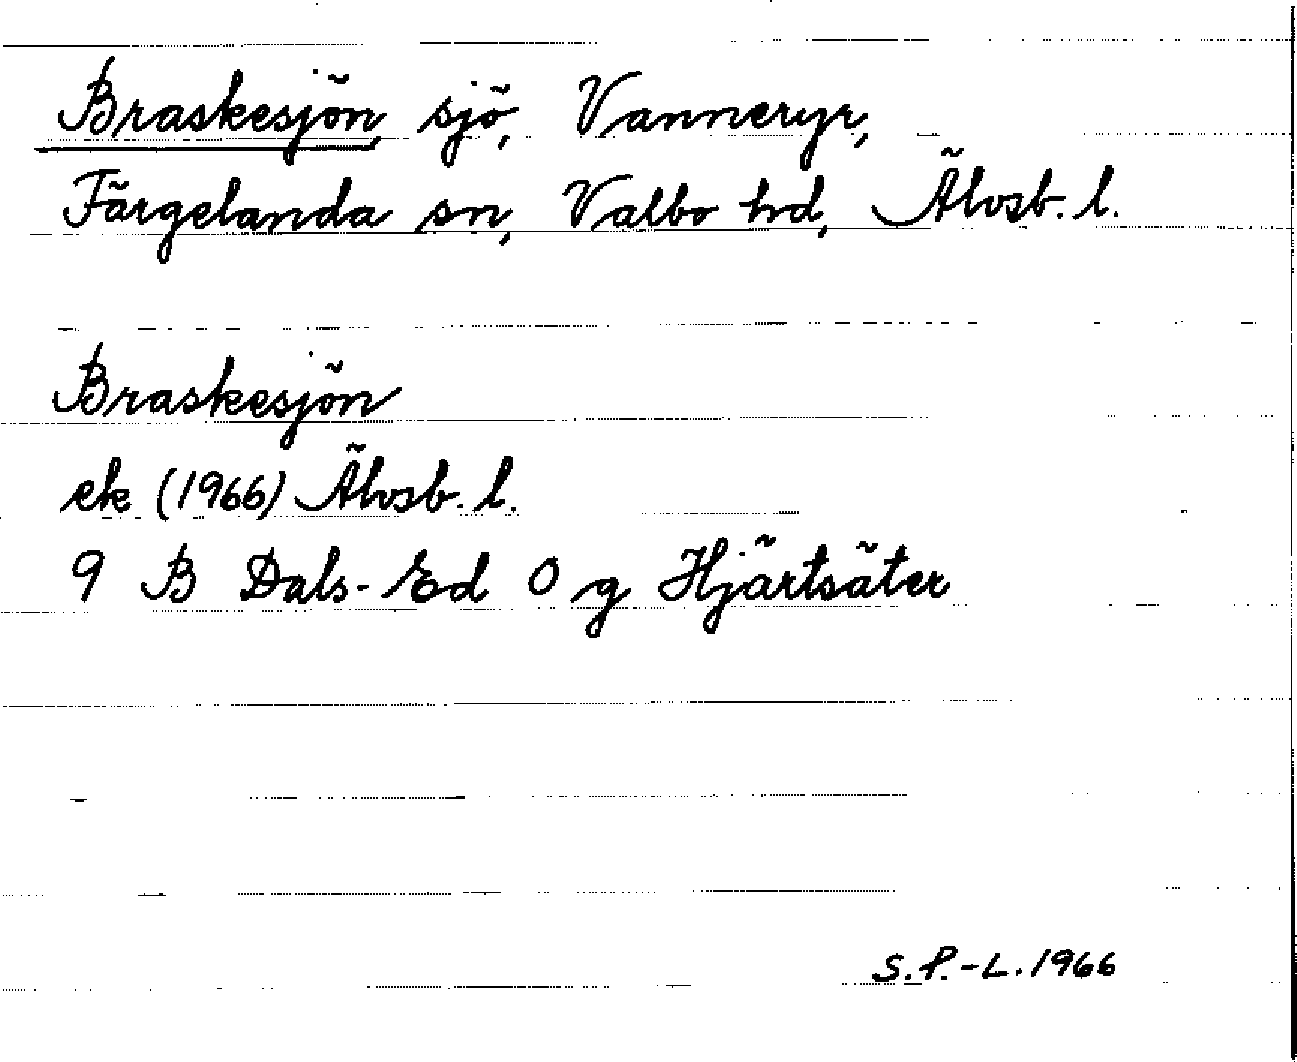 Braskesjön, sjö, Vanneryr,
Färgelanda sn, Valbo hd, Älvsb. l.
Braskesjön
ek (1966) Älvsb. l.
9 B Dals-Ed O g Hjärtsäter
S.P.-L. 1966